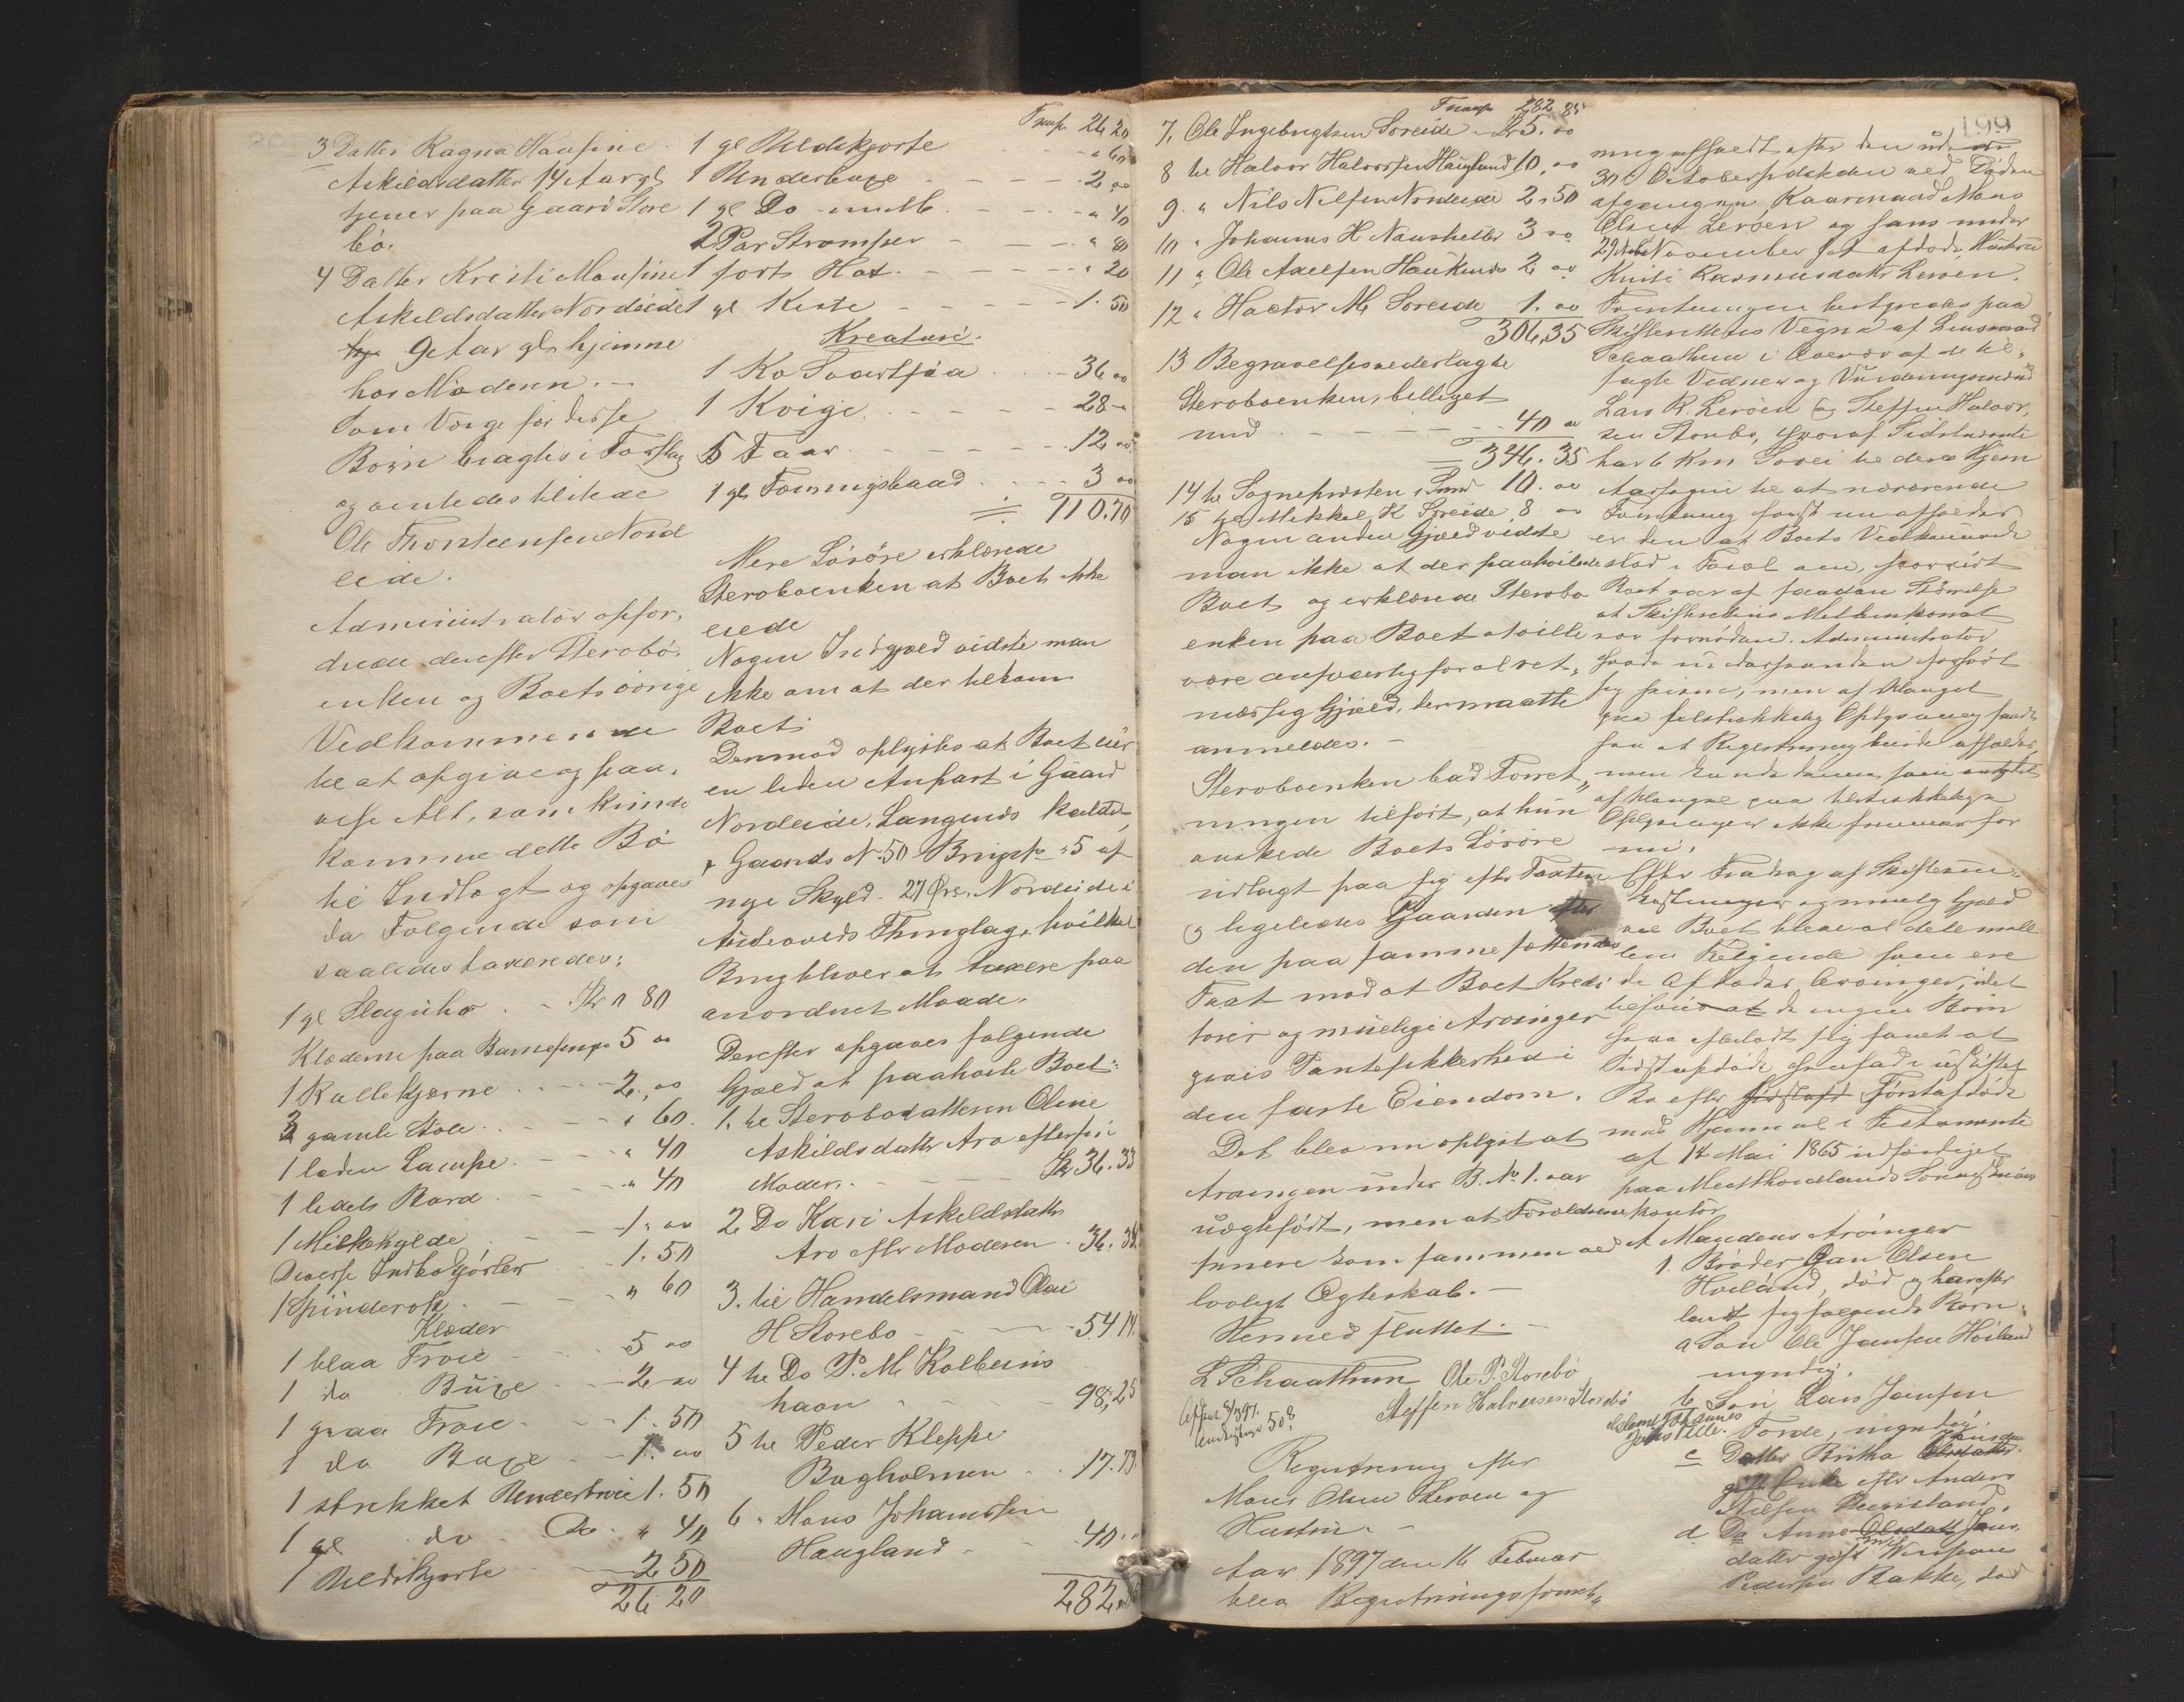 3 Datter Ragna Hansine
Askildsdatter 14 Aar gl
tjener paa Gaard Store
bö.
4 Datter Kristi Hansine
Askeldsdatter Nordeide
9 Aar gl. hjemme
hos Moderen. –
Som Værge for disse
Börn bragtes i Forslag
og anledes
Ole Thorsteensen Nord
eide.
Administrator opfor,
drede derefter Sterbo
enken og Boets övrige
Vedkommende
til at opgive og paa,
vise Alt, som kunde
komme dette Bo
til Indtægt og opgaves
da Fölgende som
saaledes taxeredes:
1 gl Slaguhr . - Kr 0 80
Klæderne paa 5 00
1 Kullekjærne - - 2. 00
2 gamle Stole - - " 60.
1 liden Lampe. - - " 40
1 lidets Bord. - - " 40
1 Melkehylde - 1. 00
Diverse Indbogjörsler - 1. 50
1 Spinderok - - " 60
Klæder
1 blaa Tröie - - 5 00
1 do Buxe - - 2 00
1 graa Troie - - 1. 50
1 do Buxe - - 1. 00
1 strikket Undertroie 1. 50
1 gl do Do. " 40
1 Uldskjorte - 2 50
26 20
Transp. 26 20
1 gl Uldskjorte - - " 60
1 Underbuxe - - - 2 00
1 gl Do - - " 40
2 Par Strömper - - " 80
1 sort Hat. - - - " 20
1 gl Kiste - - - 1. 50
Kreature.
1 Ko Svartsia - - 36 00
1 Kvige. - - - 28 -
5 Faar - - - 12 00
1 gl. Færingsbaad - - 3 00
= 110.70
Mere Lösöre erklærede
Sterboenken at Boet ikke
eiede
Nogen Indgjæld vidste man
ikke om at der tilkom
Boet
Derimod oplystes at Boet eier
en liden Anpart i Gaard
Nordeide, Langenes kaldet,
Gaards No. 50 Brugs No. 5 af
nye Skyld - 27 Øre, Nordeide i
Austevolds Thinglag, hvilket
Brug blives at taxere paa
anordnet Maade.
Derefter opgaves følgende
Gjæld at paahvile Boet:
1. til Sterbodatteren Oline
Askildsdatter Arv efter sin
Moder. - - - Kr 36. 33
2 Do Kari Askeldsdatter
Arv efter Moderen - 36. 34.
3. til Handelsmand Olai
H Storebo - - - 54 14.
4 til Do P. M. Kolbeins
havn - - - 98, 25
5 til Peder Kleppe
Bagholmen - - 17. 79.
6 " Hans Johannssen
Haugland - - 40. "
282. 85
Transp. 282 85
7. Ole Ingebrigtsen Soreide - Kr 5. 00
8 til Halvor Halvorsen Haugland 10, 00
9. " Nils Nilsen Nordeide 2. 50
10 " Johannes H. 3 00
11 " Ole Axelsen 2 00
12 " Hactor M. Soreide 1. 00
306,35
13 Begravelsesnedlagte
Sterboenken, billiget
med - - - 40 00
= 346. 35
14 til Sognepresten i Sund 10. 00
15 til Mikkel K Soreide 8 00
Nogen anden Gjæld vidste
man ikke at der paahvilede
Boet og erklærede Sterbo
enken paa Boet at ville
være ansvarlig for al ret,
mæssig Gjæld, der maatte
anmeldes. –
Sterboenken bad Forret,,
ningen tilfört, at hun
önskede Boets Lösöre
udlagt paa sig efter Taxten
og ligeledes Gaarden efter
den paa samme sættendes
Taxt mod at Boet Kredi
torer og muelige Arvinger
givis Pantesikkerhed i
den faste Eiendom.
Det blev nu oplyst at
Arvingen under B. No 1. var
uægtefödt, men at Forældrene
senere kom sammen ved
lovligt Ægteskab. –
Hermed sluttet. –
L Schaathun Ole P. Storebö
Steffen Halvorsen Storebö
Registrering efter
Mons Olsen Leröen og
Hustru. –
Aar 1897 den 16 Februar
blev Registreringsforret,,
199
ning afholdt efter den
30te October ved Döden
afgangne Kaarmand Mons
Olsen Leröen og hans under
29de November afdöde Hustru
Kristi Rasmusdatter Leröen.
Forretningen bestyredes paa
Skifterettens Vegne af Lensmand
Schaathun i Overvær af de til,
sagte Vidner og Vurderingsmænd
Lars R. Leröen og Steffen Halvor,
sen Storebo, hvoraf Sidstnævnte
har 6 Km Sovei til deres Hjem
Aarsagen til at nærværende
Forretning först nu afholdes
er den at Boets Vedkommende
stod i Tvivl om, hvorvidt
Boet var af saadan Störrelse
at Skifterettens Mellemkomst
var fornöden. Administrator
havde imidlertid forhört
sig herom, men af Mangel
paa tilstrækkelig Oplysning fandt
han at Registrering burde afholdes,
men kunde denne som antydet
af Mangel paa tilstrækkelige
Oplysninger ikke fremmes för
nu.
Efter Fradrag af Skifteom,
kostninger og muelig Gjæld
vil Boet blive at dele mell
lem Fölgende som ere
de Afdödes Arvinger, idet
tilföies at de ingen Börn
have efterladt sig samt at
Sidstafdöde hensad i uskiftet
Bo efter Förstafdöde
med Hjemmel i Testamente
af 14 Mai 1865 udfærdiget
paa Midthordlands Sorenskriver
kontor
A Mandens Arvinger
1. Broder Jan Olsen
Hoiland, död og har efter
ladt sig folgende Börn:
a Sön Ole Jansen Höiland
myndig.
b Sön Lars Jansen
Forde, myndig.
c Datter Britha Jansdatter
Enke efter Anders
Nilsen
d Do Anna Jans,
datter gift med
Pedersen Bakke, död